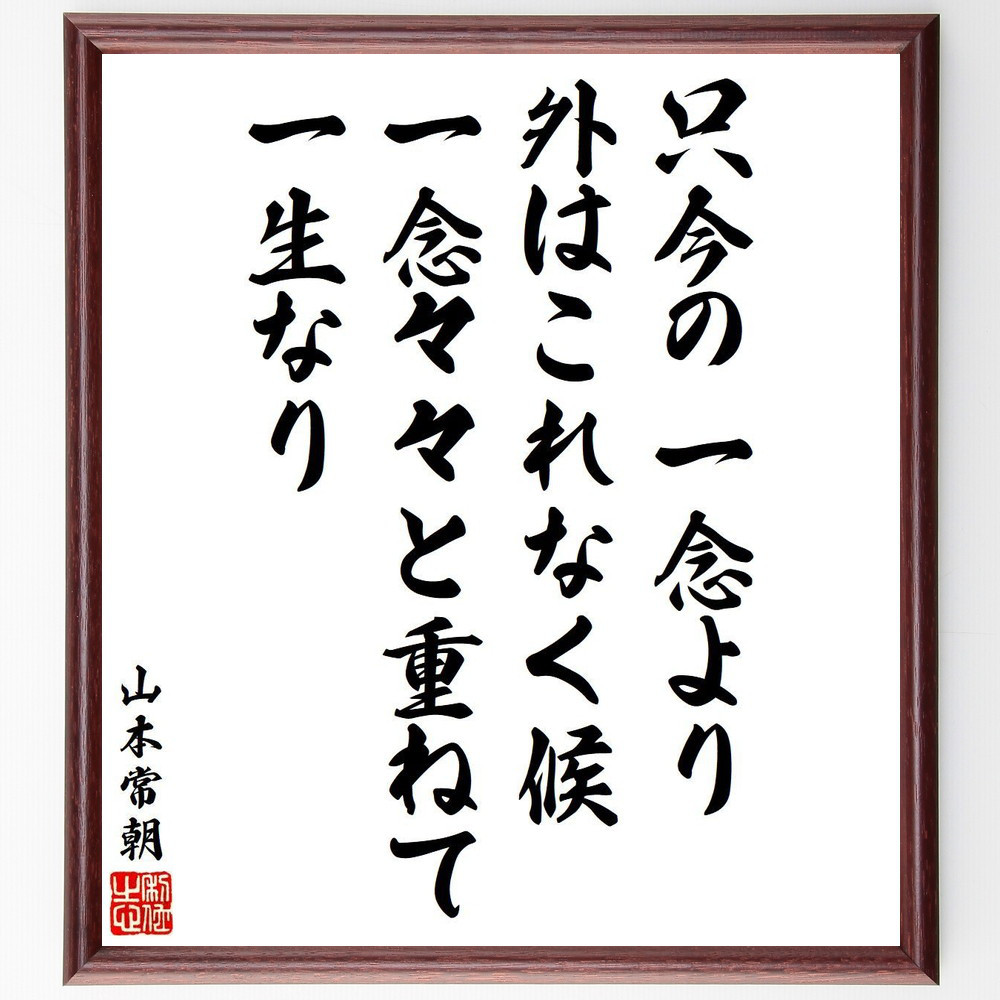 只今の一念より
外はこれなく候
一念々々と重ねて
一生なり
山本常朝